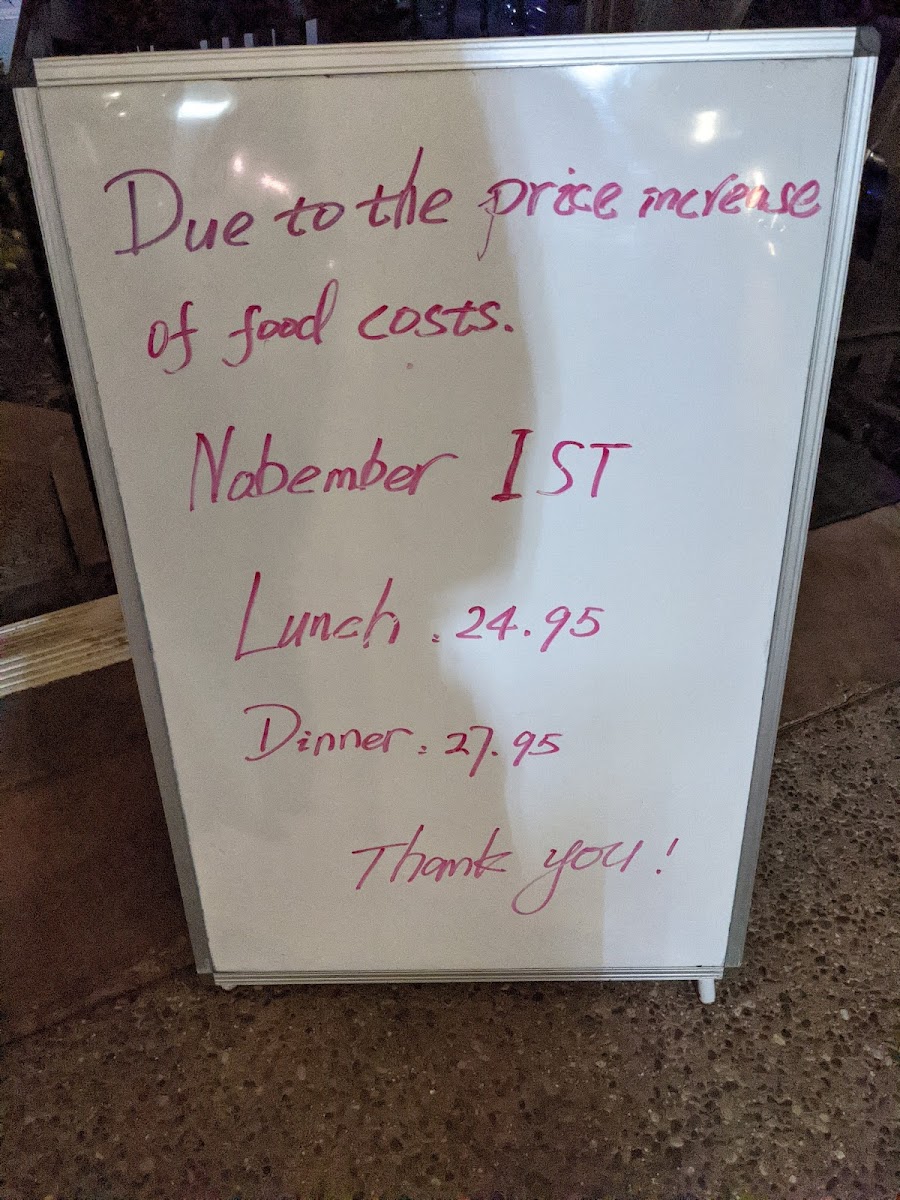 Due to the price increase
of food costs.
Nobember 1ST
Lunch : 24.95
Dinner : 27.95
Thank you!